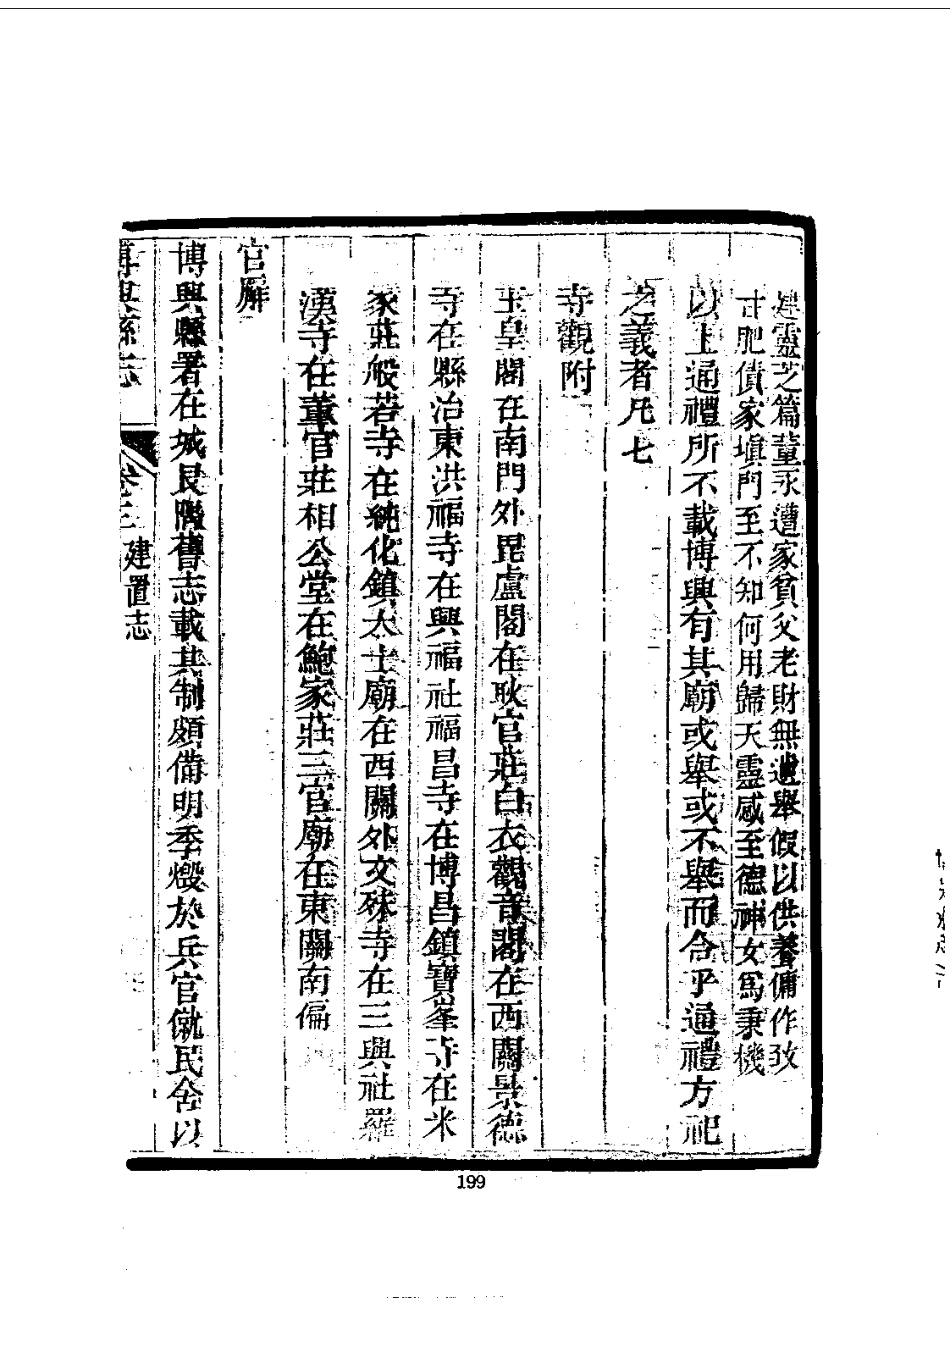 建靈芝篇董永遭家貧父老財無遺舉假以供養傭作致
甘肥債家塡門至不知何用歸天靈感至德神女爲秉機
以上通禮所不載博興有其廟或舉或不舉而合乎通禮方祀
之義者凡七
寺觀附
玉皇閣在南門外毘盧閣在耿官莊白衣觀音閣在西關景德
寺在縣治東洪福寺在興福社福昌寺在博昌鎭寶峯寺在米
家莊般若寺在純化鎭大士廟在西關外文殊寺在三興社羅
漢寺在董官莊相公堂在鮑家莊三官廟在東關南偏
官廨
博興縣署在城艮隅舊志載其制頗備明季燬於兵官僦民舍以
博興縣志
卷三
建置志
199